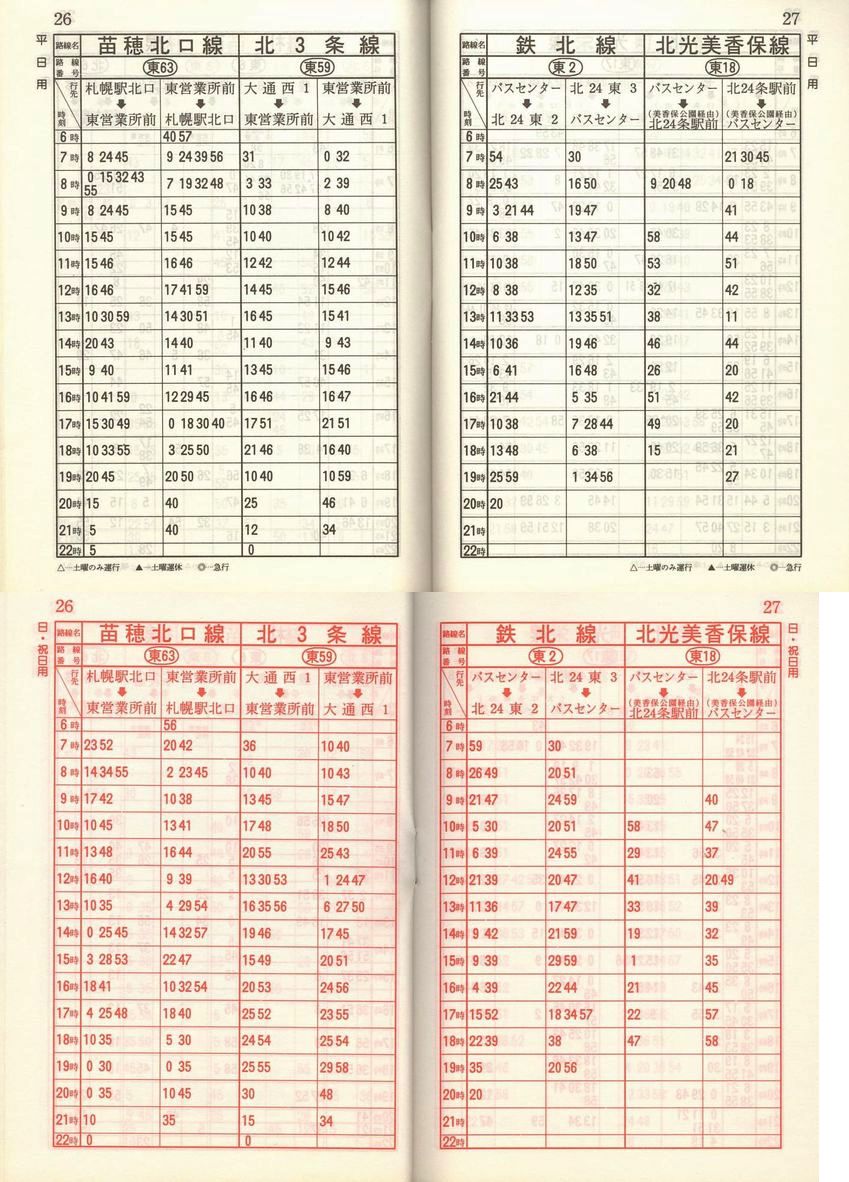 26
平日用
路線名 苗穂北口線 北3条線
路線番号 東63 東59
行先 時刻 札幌駅北口 東営業所前 大通西1 東営業所前
東営業所前 札幌駅北口 東営業所前 大通西1
6時 40 57
7時 8 24 45 9 24 39 56 31 0 32
8時 0 15 32 43 55 7 19 32 48 3 33 2 39
9時 8 24 45 15 45 10 38 8 40
10時 15 45 15 45 10 40 10 42
11時 15 46 16 46 12 42 12 44
12時 16 46 17 41 59 14 45 15 46
13時 10 30 59 14 30 51 16 45 15 41
14時 20 43 14 40 11 40 9 43
15時 9 40 11 41 13 45 15 46
16時 10 41 59 12 29 45 16 46 16 47
17時 15 30 49 0 18 30 40 17 51 21 51
18時 10 33 55 3 25 50 21 46 16 40
19時 20 45 20 50 10 40 10 59
20時 15 40 25 46
21時 5 40 12 34
22時 5 0
△…土曜のみ運行 ▲…土曜運休 ◎…急行
27
平日用
路線名 鉄北線 北光美香保線
路線番号 東2 東18
行先 時刻 バスセンター 北24東3 バスセンター 北24条駅前
(美香保公園経由) (美香保公園経由)
北24東2 バスセンター 北24条駅前 バスセンター
6時
7時 54 30 21 30 45
8時 25 43 16 50 9 20 48 0 18
9時 3 21 44 19 47 41
10時 6 38 13 47 58 44
11時 10 38 18 50 53 51
12時 8 38 12 35 32 42
13時 11 33 53 13 35 51 38 11
14時 10 36 19 46 46 44
15時 6 41 16 48 26 20
16時 21 44 5 35 51 42
17時 10 38 7 28 44 49 20
18時 13 48 6 38 15 21
19時 25 59 1 34 56 27
20時 20
21時
22時
△…土曜のみ運行 ▲…土曜運休 ◎…急行
26
日・祝日用
路線名 苗穂北口線 北3条線
路線番号 東63 東59
行先 時刻 札幌駅北口 東営業所前 大通西1 東営業所前
東営業所前 札幌駅北口 東営業所前 大通西1
6時 56
7時 23 52 20 42 36 10 40
8時 14 34 55 2 23 45 10 40 10 43
9時 17 42 10 38 13 45 15 47
10時 10 45 13 41 17 48 18 50
11時 13 48 16 44 20 55 25 43
12時 16 40 9 39 13 30 53 1 24 47
13時 10 35 4 29 54 16 35 56 6 27 50
14時 0 25 45 14 32 57 19 46 17 45
15時 3 28 53 22 47 15 49 20 51
16時 18 41 10 32 54 20 53 24 56
17時 4 25 48 18 40 25 52 23 55
18時 10 35 5 30 24 54 25 54
19時 0 30 0 35 25 55 29 58
20時 0 35 10 45 30 48
21時 10 35 15 34
22時 0 0
27
日・祝日用
路線名 鉄北線 北光美香保線
路線番号 東2 東18
行先 時刻 バスセンター 北24東3 バスセンター 北24条駅前
(美香保公園経由) (美香保公園経由)
北24東2 バスセンター 北24条駅前 バスセンター
6時
7時 59 30
8時 26 49 20 51
9時 21 47 24 59 40
10時 5 30 20 51 58 47
11時 6 39 24 55 29 37
12時 21 39 20 47 41 20 49
13時 11 36 17 47 33 39
14時 9 42 21 59 19 32
15時 9 39 29 59 1 35
16時 4 39 22 44 21 45
17時 15 52 18 34 57 22 57
18時 22 39 38 47 58
19時 35 20 56
20時 20
21時
22時